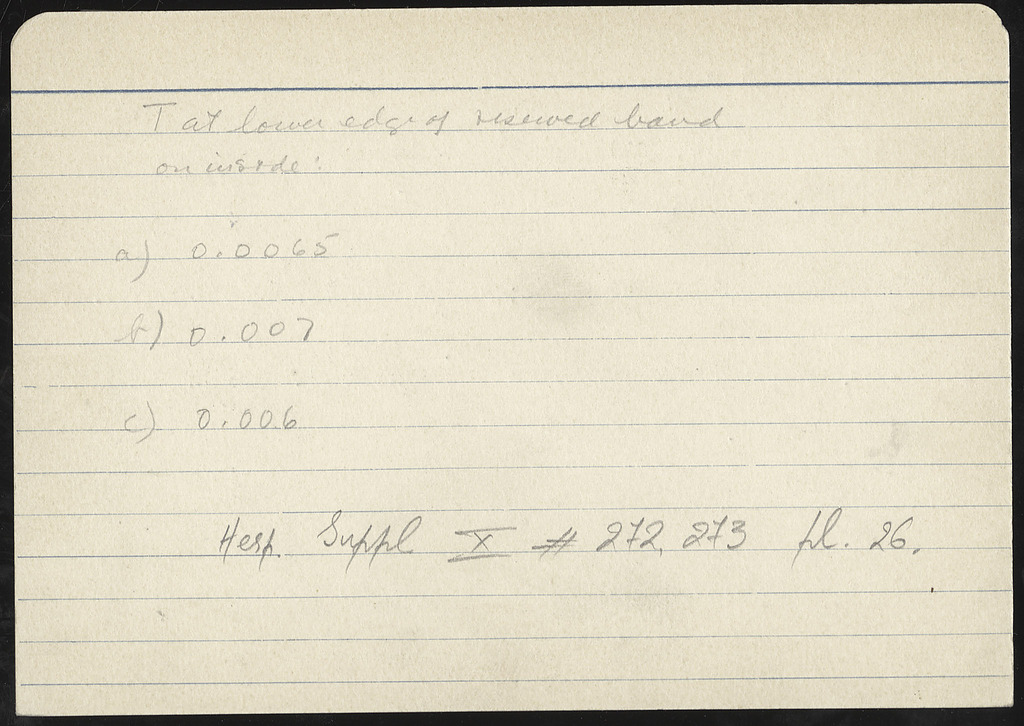 T at lower edge of reserved band
on inside:
a) 0.0065
b) 0.007
c) 0.006
Hesp. Suppl X # 272, 273 pl. 26.